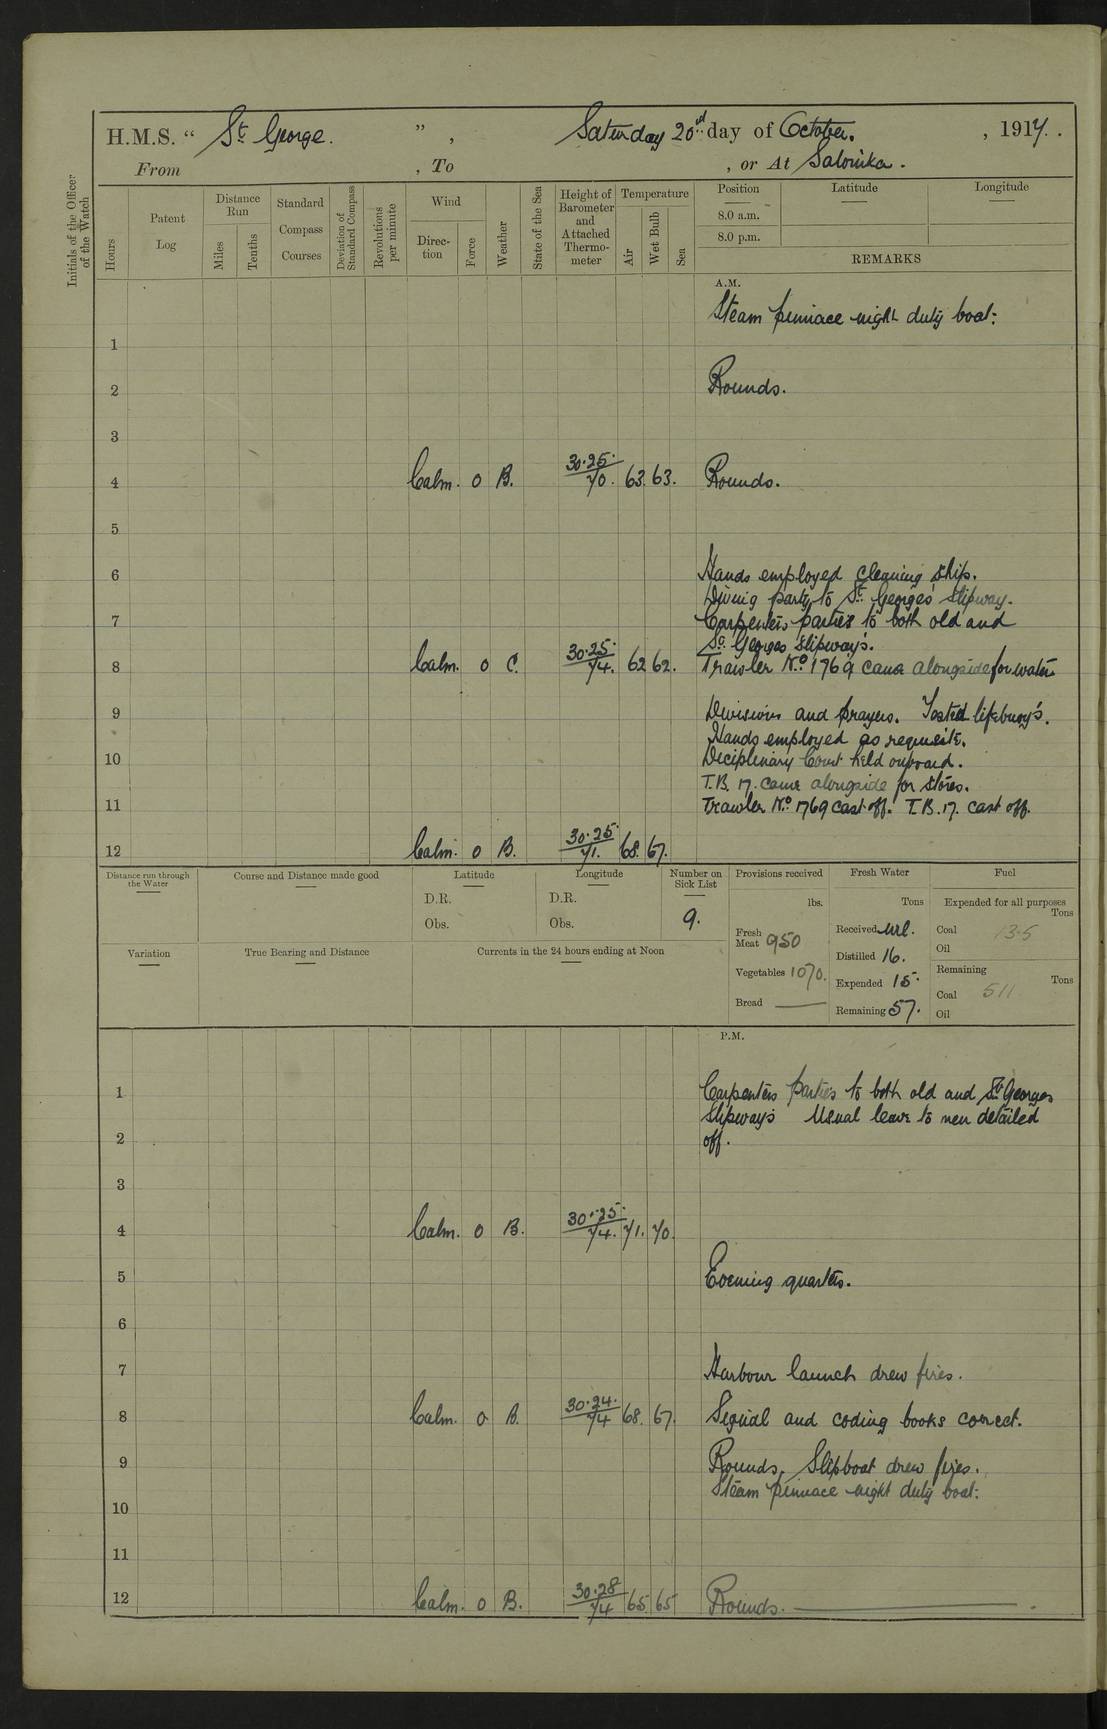 H.M.S. “ St. George. ” , Saturday 20rd day of October. , 1917.
From , To , or At Salonika.
Initials of the Officer of the Watch
Hours
Patent Log
Distance Run
Miles
Tenths
Standard Compass Courses
Deviation of Standard Compass
Revolutions per minute
Wind
Direction
Force
Weather
State of the Sea
Height of Barometer and Attached Thermometer
Temperature
Air
Wet Bulb
Sea
Position
Latitude
Longitude
8.0 a.m.
8.0 p.m.
REMARKS
A.M.
Steam pinnace night duty boat.
1
2 Rounds.
3
4 Calm. 0 B. 30.25. 70. 63. 63. Rounds.
5
6 Hands employed cleaning ship.
Diving party to St. Georges' slipway.
7 Carpenters parties to both old and
St. Georges slipway's.
8 Calm. 0 C. 30.25. 74. 62 62. Trawler No. 1769 came alongside for water
9 Divisions and prayers. Tested lifebuoy's.
Hands employed as requisite.
10 Deciplinary Court held onboard.
T.B. 17. came alongside for stores.
11 Trawler No. 1769 cast off. T.B. 17. cast off.
12 Calm. 0 B. 30.25 71. 68. 67.
Distance run through the Water
Course and Distance made good
Latitude
D.R.
Obs.
Longitude
D.R.
Obs.
Number on Sick List
9.
Provisions received
lbs.
Fresh Meat 950
Vegetables 1070.
Bread —
Fresh Water
Tons
Received nil.
Distilled 16.
Expended 15.
Remaining 57.
Fuel
Expended for all purposes
Tons
Coal 13.5
Oil
Remaining
Tons
Coal 511
Oil
Variation
True Bearing and Distance
Currents in the 24 hours ending at Noon
P.M.
1 Carpenters parties to both old and St. Georges
Slipway's Usual leave to men detailed
2 off.
3
4 Calm. 0 B. 30.25. 74. 71. 70.
5 Evening quarters.
6
7 Harbour launch drew fires.
8 Calm. 0 B. 30.24. 74 68. 67. Signal and coding books correct.
9 Rounds, Slipboat drew fires.
Steam pinnace night duty boat.
10
11
12 Calm. 0 B. 30.28 74 65 65 Rounds.